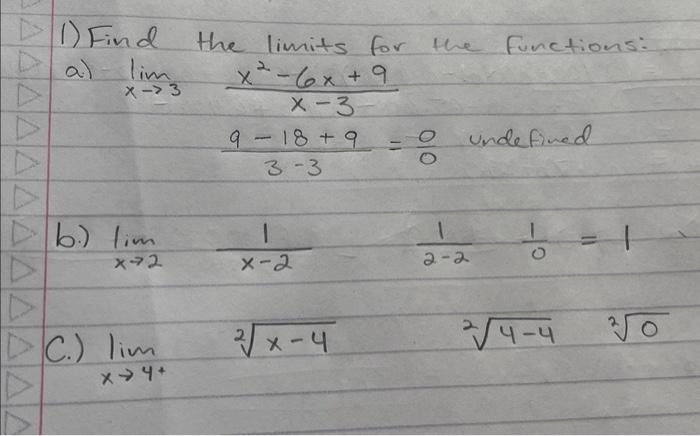 1) Find the limits for the functions:
a) lim x→3 x² - 6x + 9 / x - 3
9 - 18 + 9 / 3 - 3 = 0/0 undefined
b.) lim x→2 1 / x - 2 1 / 2 - 2 1/0 = 1
C.) lim x→4+ ²√x - 4 ²√4 - 4 ²√0